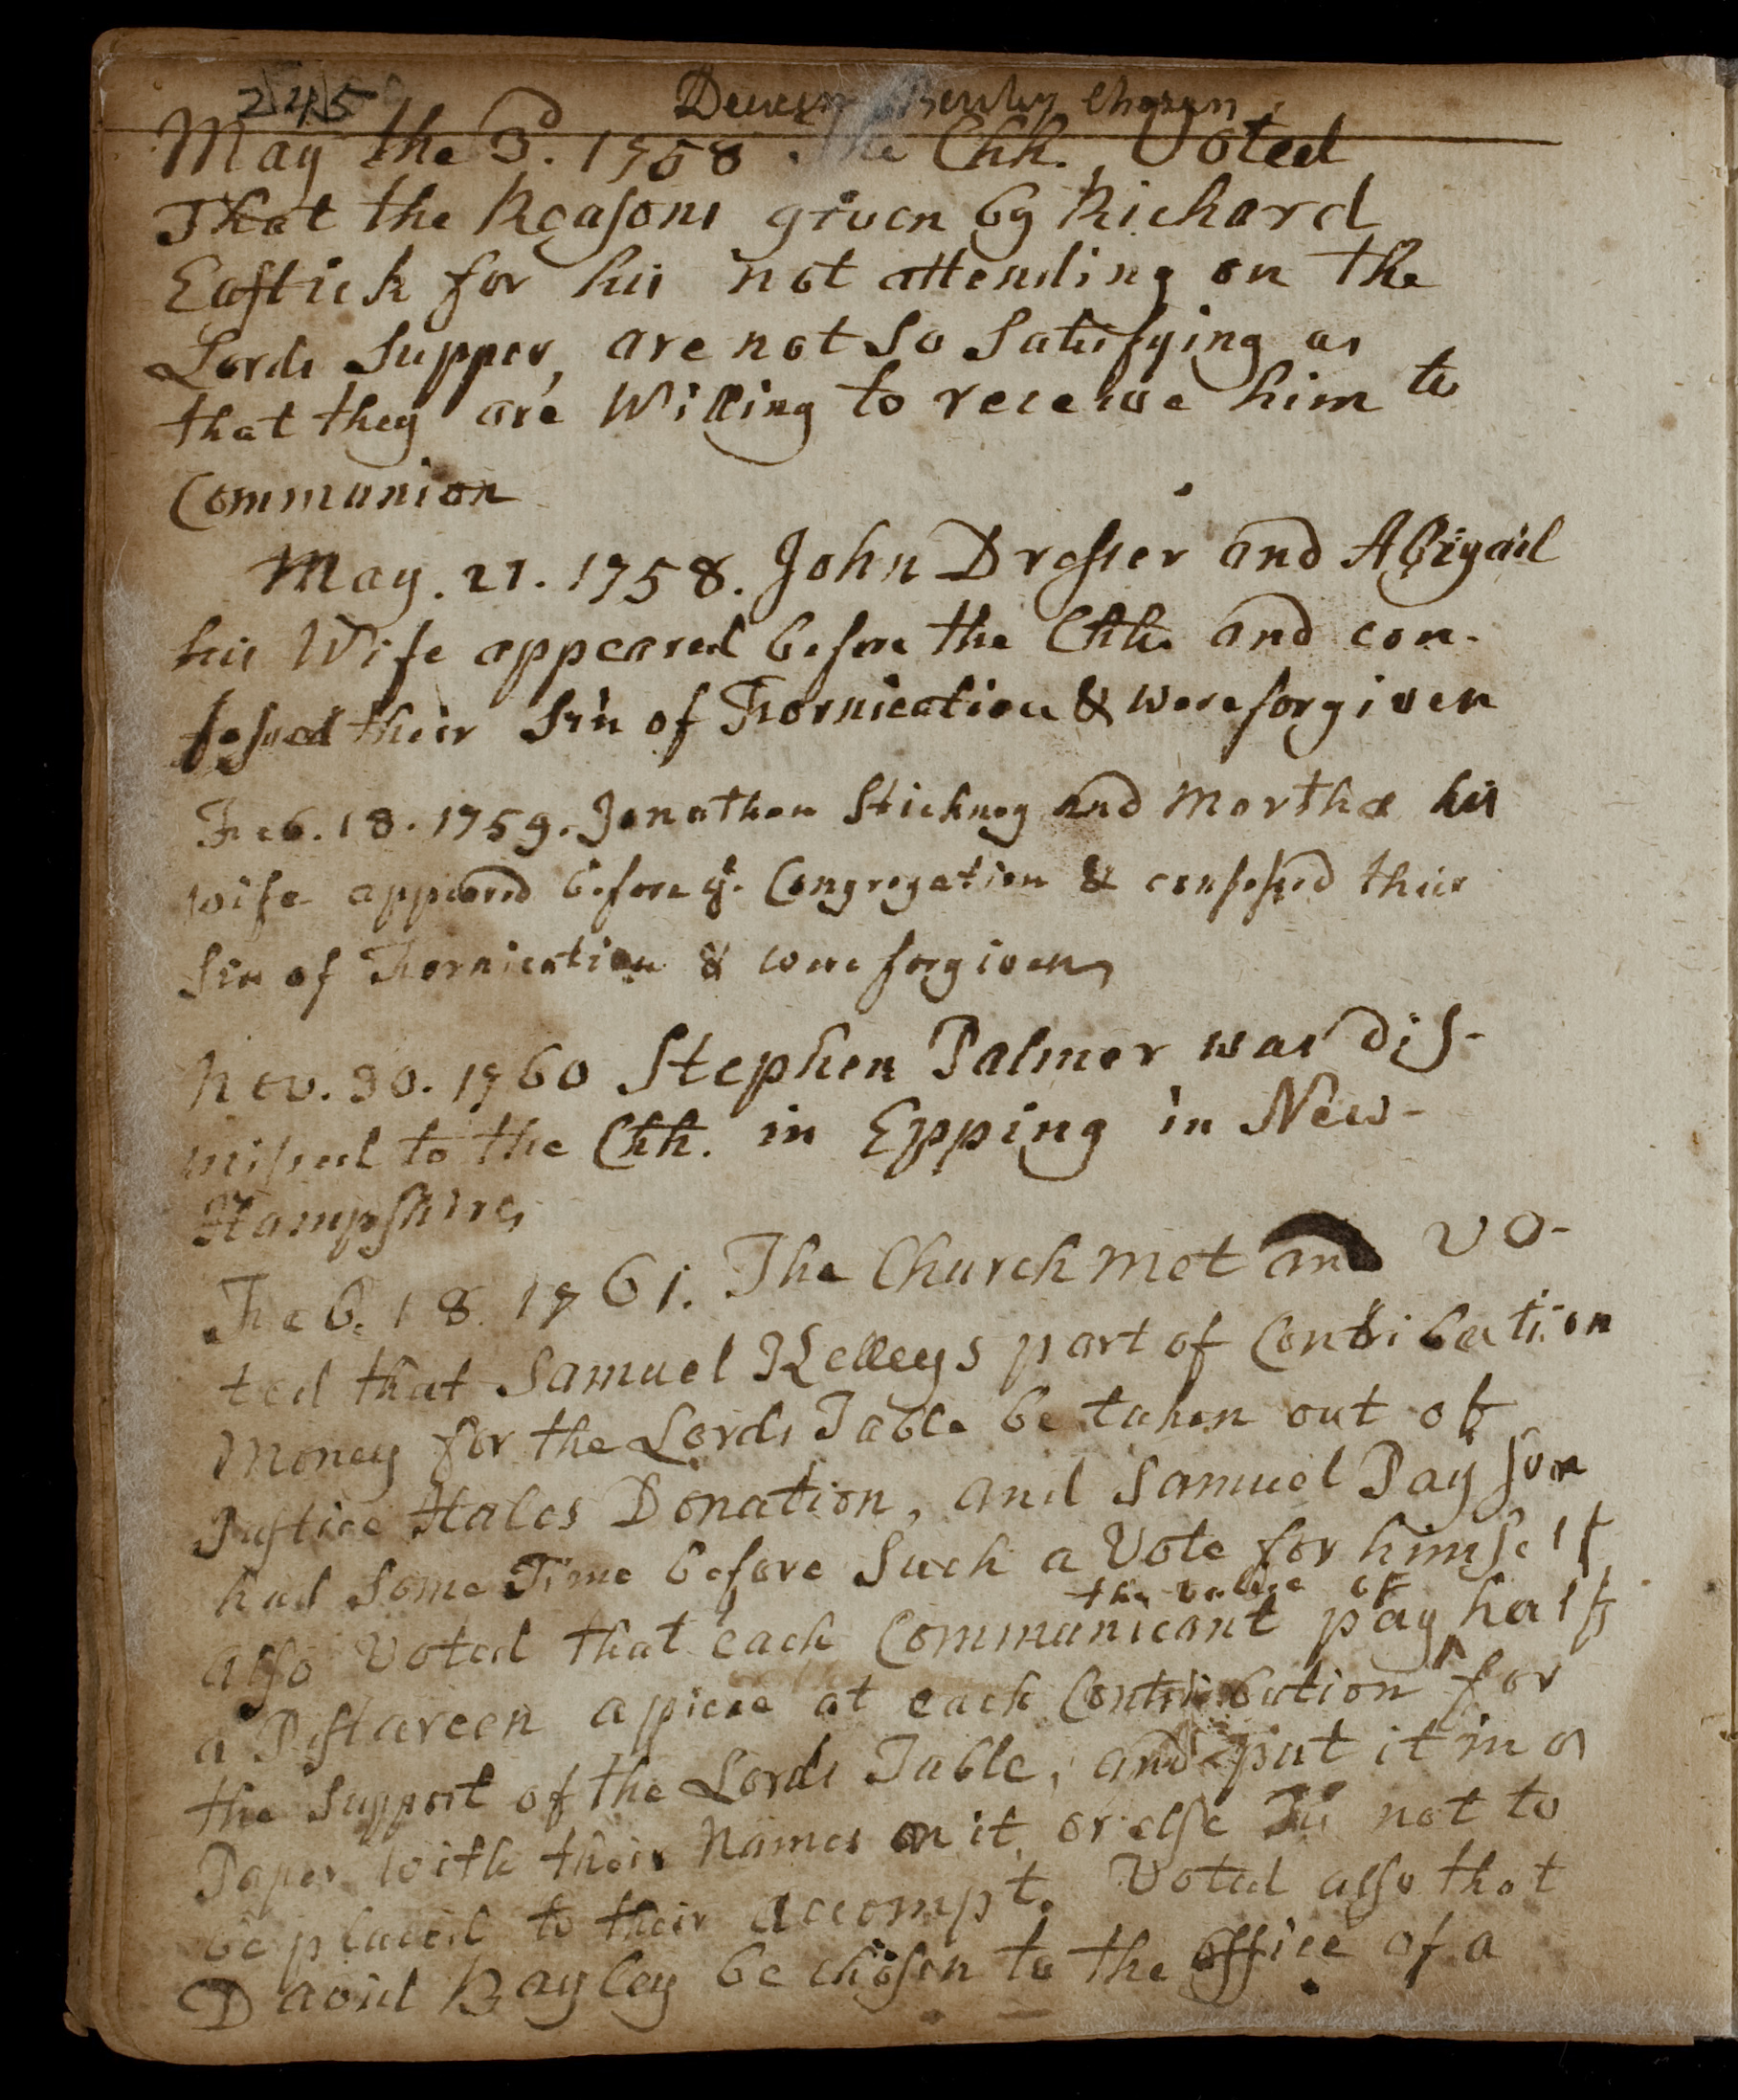 245 Deacon chosen
May the 3d. 1758. The Chh. Voted
That the Reasons given by Richard
Eastick for his not attending on the
Lords Supper, are not so Satisfying as
that they are Willing to receive him to
Communion
May. 21. 1758. John Dresser and Abigail
his Wife appeared before the Chh. and con-
fessed their Sin of Fornication & were forgiven
Feb. 18. 1759. Jonathan Stickney and Martha his
wife appeared before ye. Congregation & confessed their
Sin of Fornication & were forgiven,
Nov. 30. 1760 Stephen Palmer was dis-
missed to the Chh. in Epping in New-
Hampshire,
Feb. 18. 1761. The Church met and vo-
ted that Samuel Kelleys part of Contribution
Money for the Lords Table be taken out of
Justice Hales Donation, and Samuel Payson
had Some Time before Such a Vote for himself
the value of
also Voted that each Communicant pay ^ half
a Pistareen apiece at each Contribution for
the Support of the Lords Table, and put it in a
Paper with their Names on it, or else Tis not to
be placed to their accompt. Voted also that
David Bayley be chosen to the office of a